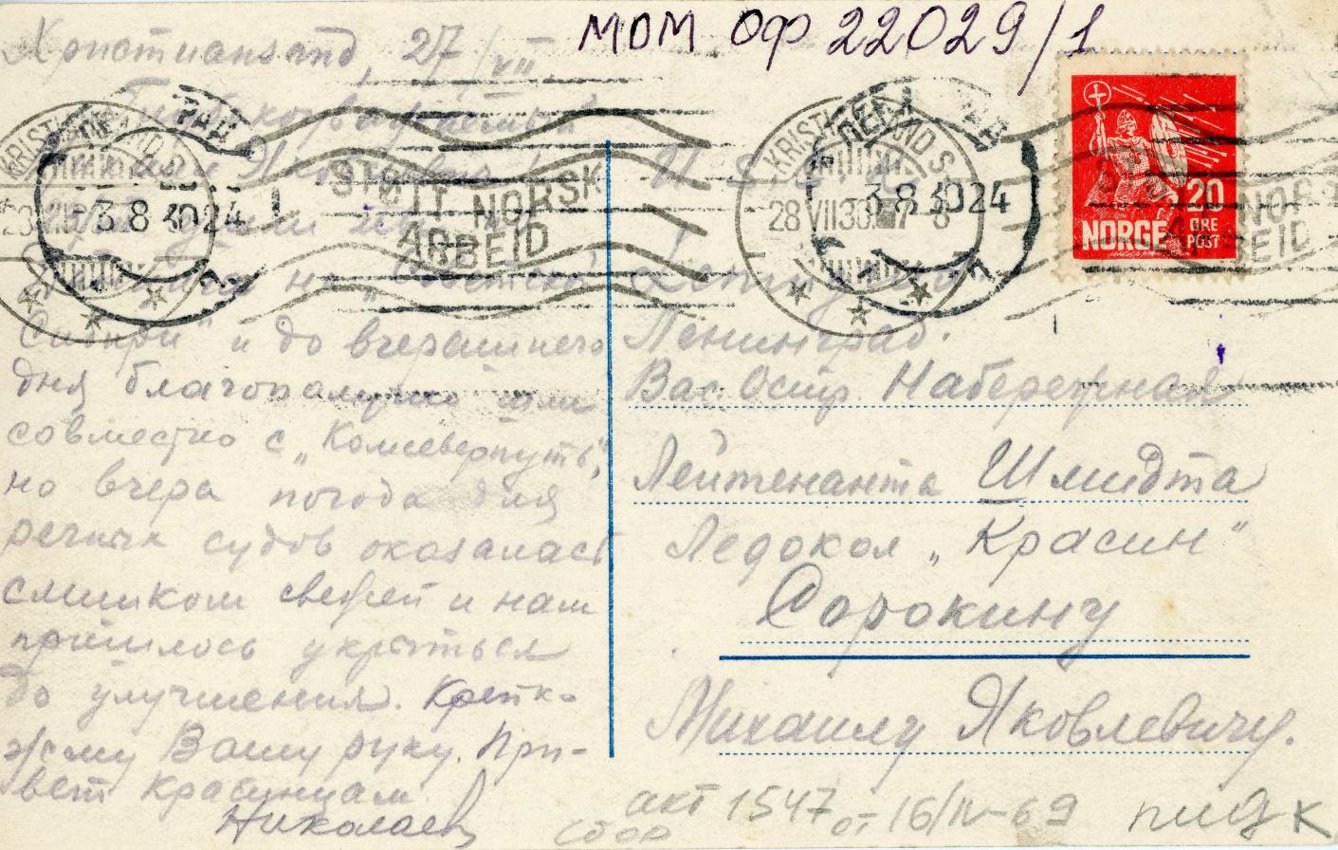 МОМ ОФ 22029/1
Христиансанд, 27/VII
Глубокоуважаемый
Яковлевич
на „Советской
Сибири" и до вчерашнего
дня благополучно шли
совместно с „Комсеверпуть",
но вчера погода для
речных судов оказалась
слишком свежей и нам
пришлось укрыться
до улучшения. Крепко
жму Вашу руку. При-
вет красинцам
Николаев
STØTT NORSK
ARBEID
KRISTIANSAND S
28 VII 30
3 8 30 24
NORGE
20
ØRE
POST
U S S R
Ленинград
Ленинград.
Вас. Остр. Набережная
Лейтенанта Шмидта
Ледокол „Красин"
Сорокину
Михаилу Яковлевичу.
акт 1547 от 16/IV-69
сбор